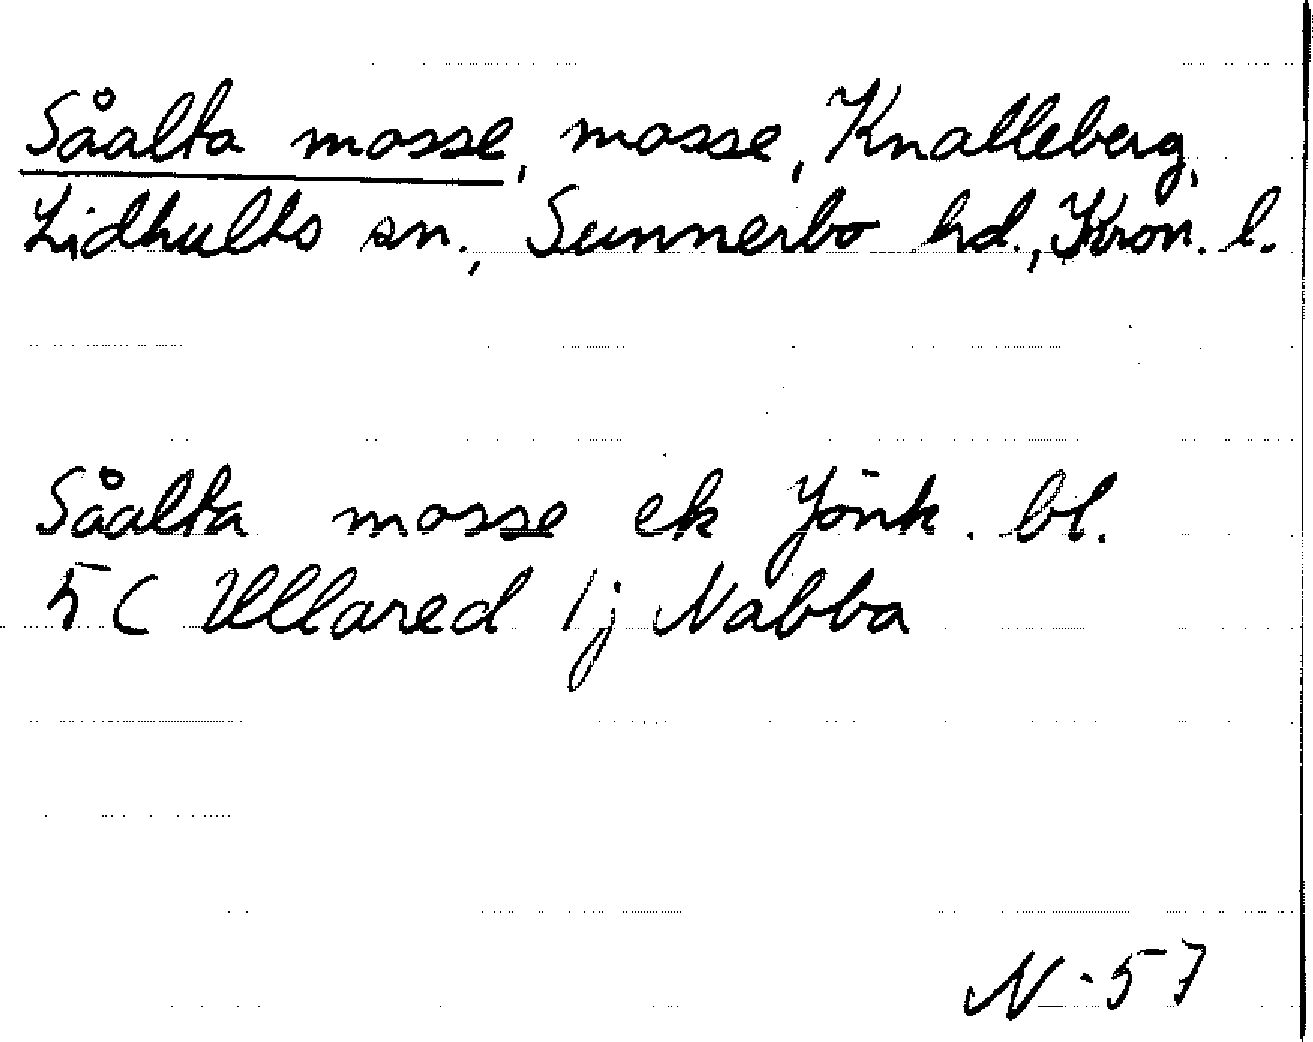 Såalta mosse, mosse, Knalleberg,
Lidhults sn., Sunnerbo hd., Kron. l.
Såalta mosse ek Jönk. bl.
5C Ullared 1j Nabba
N-57